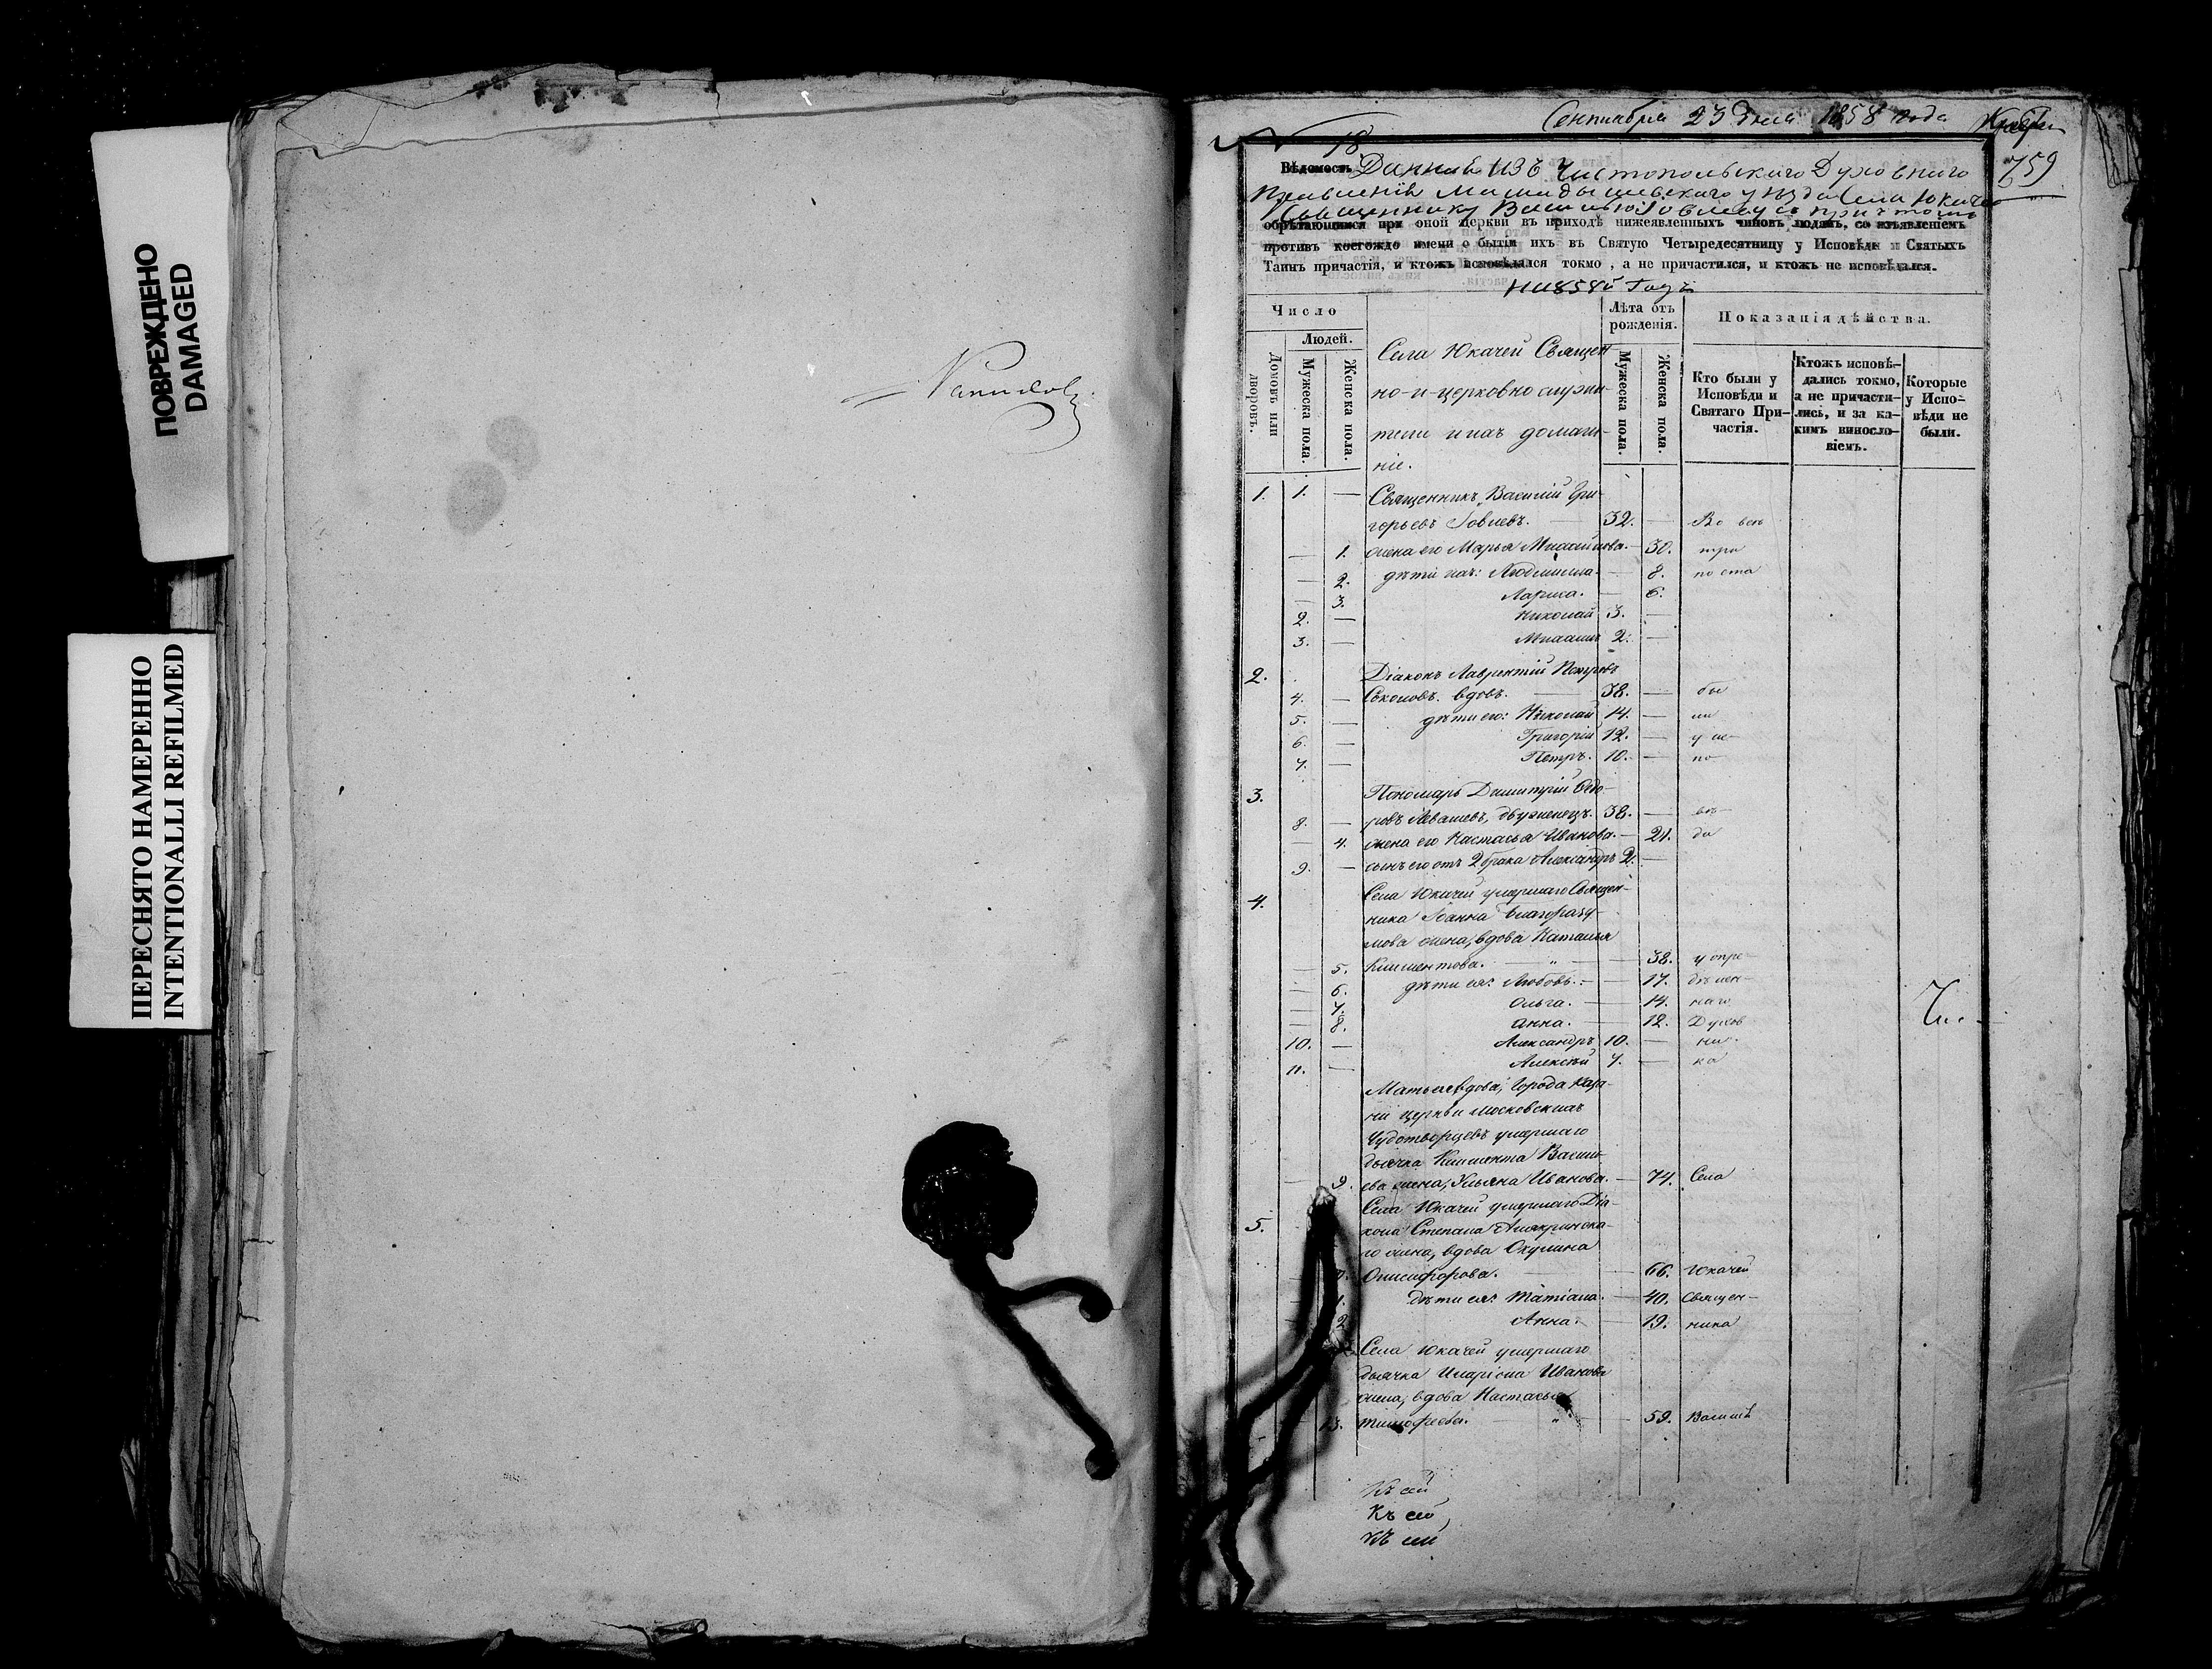 ПОВРЕЖДЕНО
DAMAGED
ПЕРЕСНЯТО НАМЕРЕННО
INTENTIONALLI REFILMED
Сентября 23 дня 1858 года
18
759
Вѣдомость Данная изъ Чистопольскаго Духовнаго
Правленія Мамадышевскаго уѣзда Села Юкачей
Священнику Василью Говлеву съ причтомъ
обрѣтающимся при оной церкви въ приходѣ нижеявленныхъ чиновъ людямъ, со изъявленіемъ
противъ коегождо имени о бытіи ихъ въ Святую Четыредесятницу у Исповѣди и Святыхъ
Таинъ причастія, и ктожъ исповѣдался токмо, а не причастился, и ктожъ не исповѣдался.
на 1858й Годъ
Число
Людей.
Домовъ или дворовъ.
Мужеска пола.
Женска пола.
Села Юкачей Священ-
но-и-церковно служи-
тели и ихъ домаш-
ніе.
Лѣта отъ рожденія.
Мужеска пола.
Женска пола.
Показанія дѣйства.
Кто были у Исповѣди и Святаго При-частія.
Ктожъ исповѣ-дались токмо, а не причасти-лись, и за ка-кимъ винословіемъ.
Которые у Испо-вѣди не были.
1. 1. — Священникъ Василій Гри-
горьевъ Говлевъ. — 32. — Во вся
— 1. жена его Марья Михайлова. — 30. три
— 2. дѣти ихъ: Людмила. — 8. поста
— 3. Лариса. — 6.
2. — Николай 3. —
3. — Михаилъ 2. —
2. Діаконъ Лаврентій Петровъ
4. — Соколовъ. вдовъ. — 38. — бы
5. — дѣти его: Николай 14. — ли
6. — Григорій 12. — у ис-
7. — Петръ. 10. — по
3. Пономарь Димитрій Ѳедо-
8. — ровъ Левашевъ, двуженецъ. 38. — вѣ-
— 4. жена его Настасья Иванова. — 21. ди
9. — сынъ его отъ 2 брака Александръ 2. —
4. Села Юкачей умершаго Священ-
ника Іоанна Благоразу-
мова жена, вдова Наталья
— 5. Климентова. — 38. у опре-
— 6. дѣти ея: Любовь. — 17. дѣлен-
— 7. Ольга. — 14. наго
— 8. Анна. — 12. Духов
10. — Александръ 10. — ни-
11. — Алексѣй 7. — ка
Мать ея вдова, Города Каза-
ни церкви Московскихъ
Чудотворцевъ умершаго
дьячка Климента Василь-
— 9. ева жена, Ульяна Иванова. — 74. Села
5. Села Юкачей умершаго Діа-
кона Степана
го жена, вдова Окулина
Онисифорова. — 66. Юкачей
1. дѣти ея: Татіана. — 40. Священ-
2. Анна. — 19. ника
Села Юкачей умершаго
дьячка Иларіона Иванова
жена, вдова Настасья
— 13. Тимофеева. — 59. Василь
Къ сей
Къ сей
Къ сей